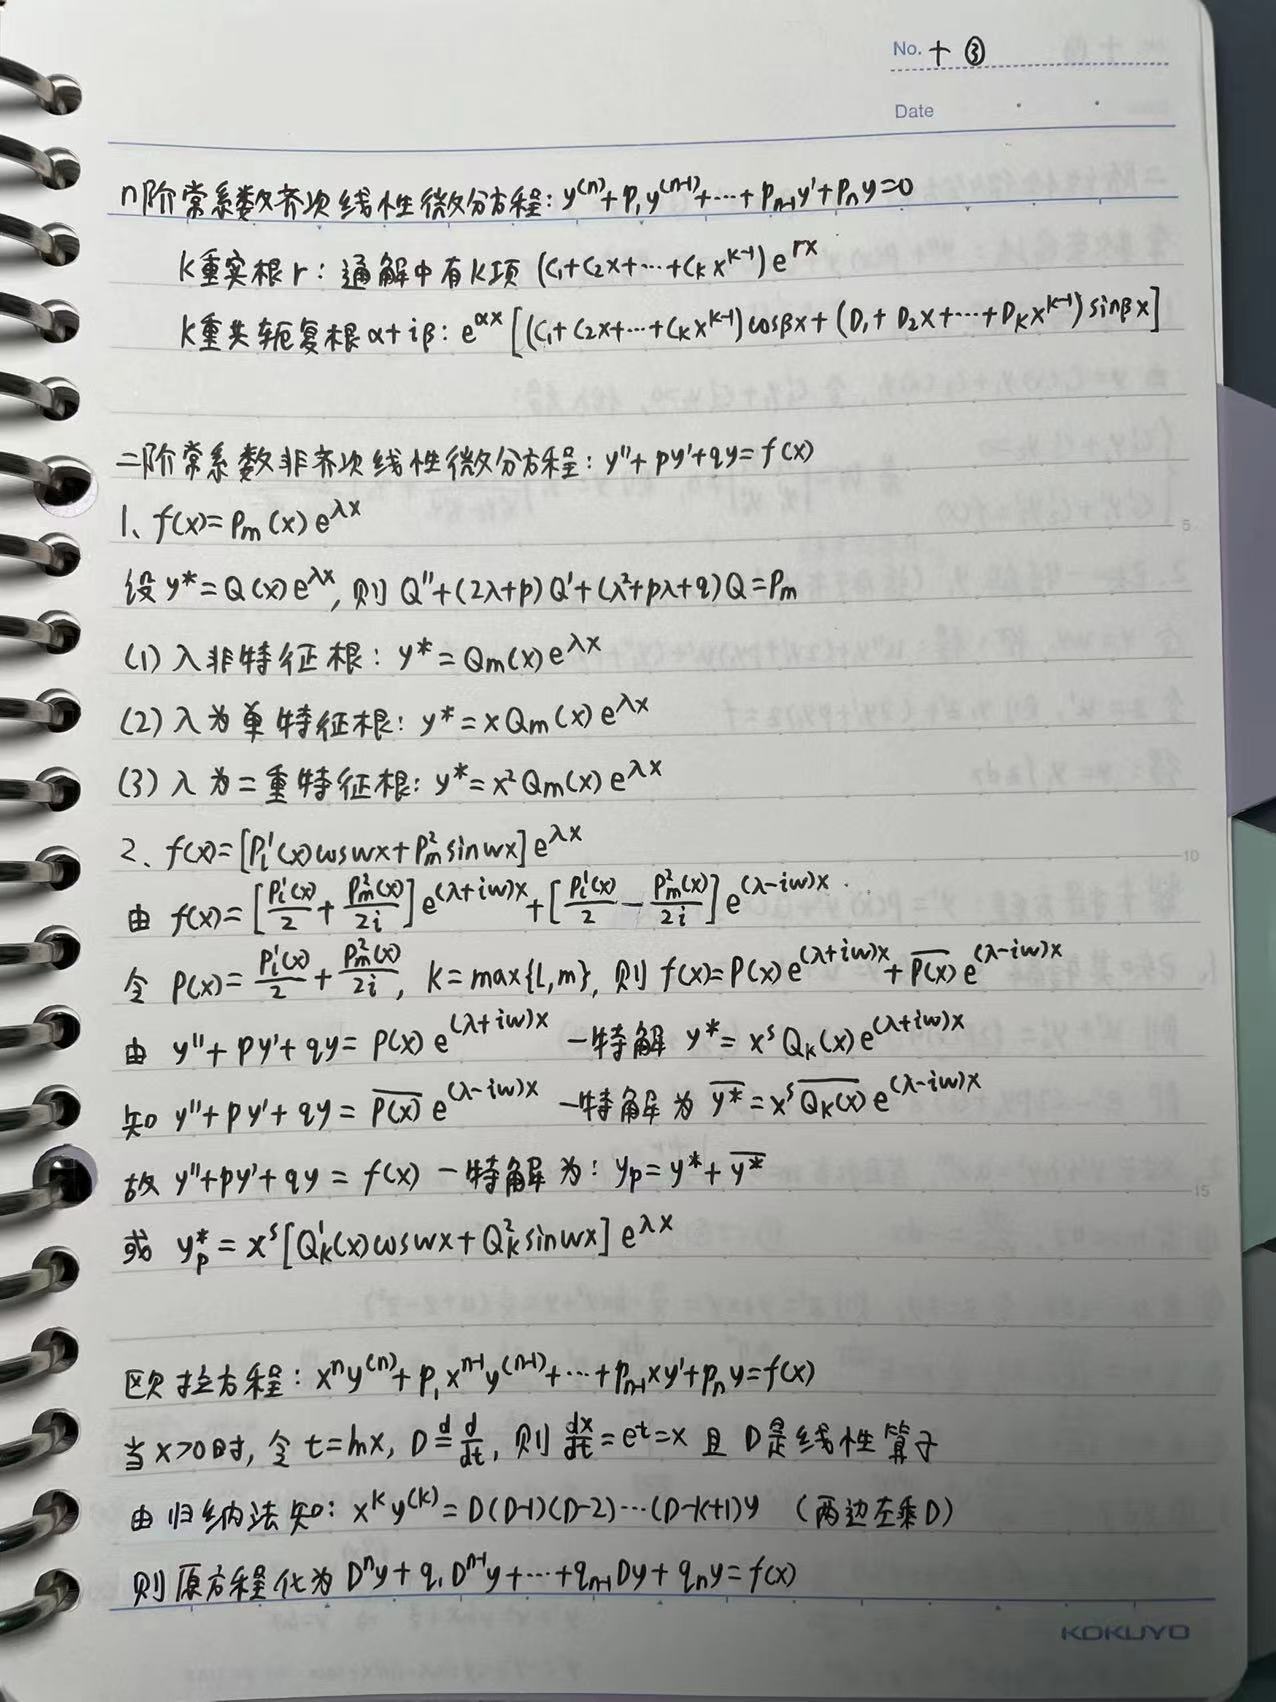 No. 十 ③
Date
n阶常系数齐次线性微分方程: y⁽ⁿ⁾+p₁y⁽ⁿ⁻¹⁾+…+pₙ₋₁y'+pₙy=0
k重实根r: 通解中有k项 (C₁+C₂x+…+Cₖxᵏ⁻¹)e^{rx}
k重共轭复根α+iβ: e^{αx}[(C₁+C₂x+…+Cₖxᵏ⁻¹)cosβx+(D₁+D₂x+…+Dₖxᵏ⁻¹)sinβx]
二阶常系数非齐次线性微分方程: y''+py'+qy=f(x)
1、f(x)=Pₘ(x)e^{λx}
设y*=Q(x)e^{λx}, 则 Q''+(2λ+p)Q'+(λ²+pλ+q)Q=Pₘ
(1) λ非特征根: y*=Qₘ(x)e^{λx}
(2) λ为单特征根: y*=xQₘ(x)e^{λx}
(3) λ为二重特征根: y*=x²Qₘ(x)e^{λx}
2、f(x)=[P_l^1(x)coswx+P_m^2 sinwx]e^{λx}
由 f(x)=[P_l^1(x)/2+P_m^2(x)/2i]e^{(λ+iw)x}+[P_l^1(x)/2-P_m^2(x)/2i]e^{(λ-iw)x}.
令 P(x)=P_l^1(x)/2+P_m^2(x)/2i, k=max{l,m}, 则 f(x)=P(x)e^{(λ+iw)x}+\overline{P(x)}e^{(λ-iw)x}
由 y''+py'+qy=P(x)e^{(λ+iw)x} 一特解 y*=xˢQₖ(x)e^{(λ+iw)x}
知 y''+py'+qy=\overline{P(x)}e^{(λ-iw)x} 一特解为 \overline{y*}=xˢ\overline{Qₖ(x)}e^{(λ-iw)x}
故 y''+py'+qy=f(x) 一特解为: y_p=y*+\overline{y*}
或 y_p^*=xˢ[Q_k^1(x)coswx+Q_k^2 sinwx]e^{λx}
欧拉方程: xⁿy⁽ⁿ⁾+p₁xⁿ⁻¹y⁽ⁿ⁻¹⁾+…+pₙ₋₁xy'+pₙy=f(x)
当x>0时, 令t=lnx, D≝d/dt, 则 dx/dt=eᵗ=x 且 D是线性算子
由归纳法知: xᵏy⁽ᵏ⁾=D(D-1)(D-2)…(D-k+1)y (两边左乘D)
则原方程化为 Dⁿy+q₁Dⁿ⁻¹y+…+qₙ₋₁Dy+qₙy=f(x)
5
10
15
KOKUYO